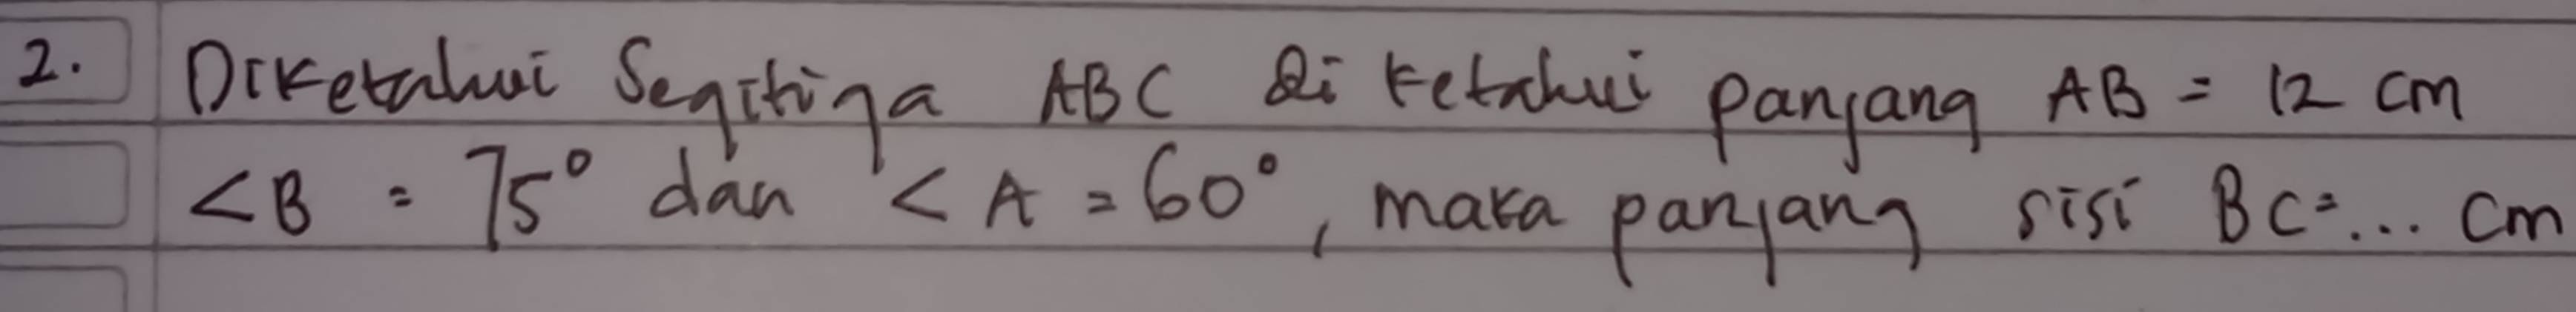 2. Diketahui Segitiga ABC Di ketahui panjang AB = 12 cm
<B = 75° dan <A = 60°, maka panjang sisi BC = ... cm